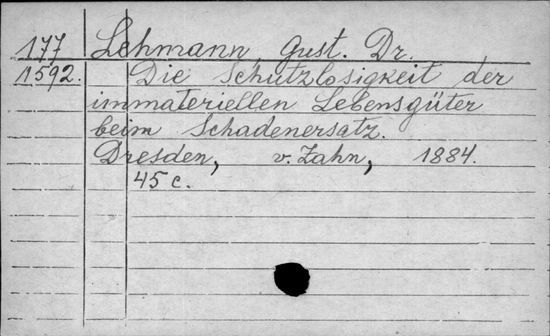 177 Lehmann Gust. Dr.
1592. Die Schutzlosigkeit der
immateriellen Lebensgüter
beim Schadenersatz.
Dresden, v. Zahn, 1884.
45 c.